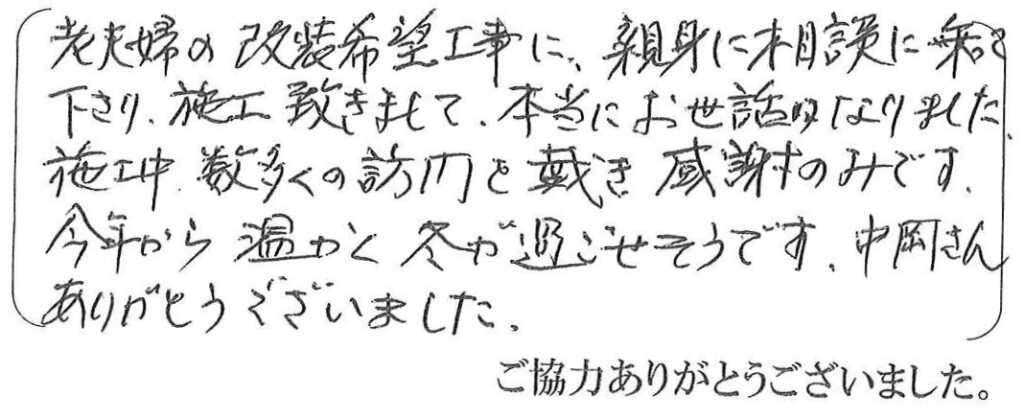 老夫婦の改装希望工事に、親身に相談に乗って
下さり、施工致きまして、本当にお世話になりました。
施工中、数多くの訪問を戴き感謝のみです。
今年から温かく冬が過ごせそうです。中岡さん
ありがとうございました。
ご協力ありがとうございました。